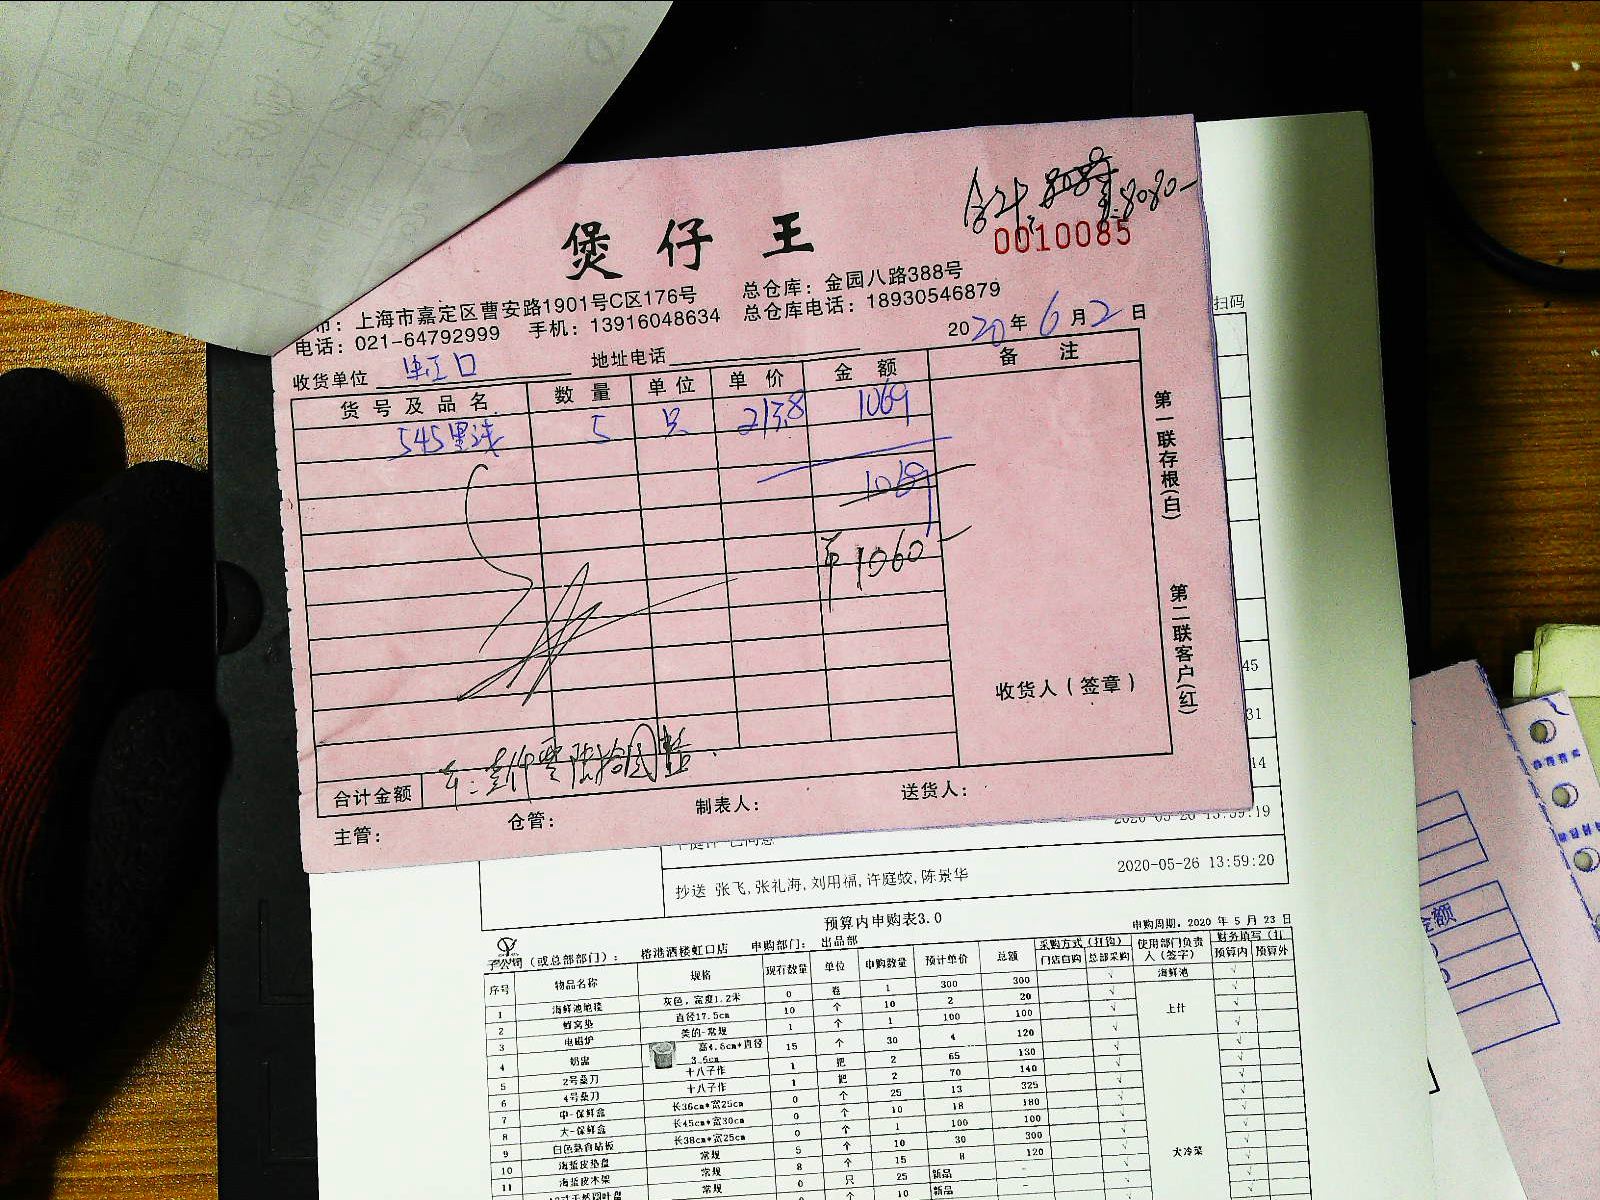 合计:
8080-
煲仔王
0010085
上海市嘉定区曹安路1901号C区176号 总仓库：金园八路388号
电话：021-64792999 手机：13916048634 总仓库电话：18930546879
2020年6月2日
收货单位 虹口 地址电话
货号及品名 数量 单位 单价 金额 备注
545 5 只 213.8 1069
1069
1060
第一联存根(白)
第二联客户(红)
收货人(签章)
合计金额
主管： 仓管： 制表人： 送货人：
扫码
45
31
14
2020-05-26 13:59:19
抄送 张飞,张礼海,刘用福,许庭蛟,陈景华 2020-05-26 13:59:20
预算内申购表3.0
申购周期：2020 年 5 月 23 日
子公司（或总部部门）： 榕港酒楼虹口店 申购部门： 出品部
序号 物品名称 规格 现存数量 单位 申购数量 预计单价 总额 采购方式（打钩） 门店自购 总部采购 使用部门负责人（签字） 财务填写（打 预算内 预算外
1 海鲜池地毯 灰色，宽度1.2米 0 卷 1 300 300 √ 海鲜池 √
2 蜂窝垫 直径17.5cm 10 个 10 2 20 √ √
3 电磁炉 美的-常规 1 个 1 100 100 √ 上什 √
4 奶盅 高4.8cm*直径3.5cm 15 个 30 4 120 √ √
5 2号桑刀 十八子作 1 把 2 65 130 √ √
6 4号桑刀 十八子作 1 把 2 70 140 √ √
7 中-保鲜盒 长36cm*宽25cm 0 个 25 13 325 √ √
8 大-保鲜盒 长45cm*宽30cm 0 个 10 18 180 √ √
9 白色熟食砧板 长38cm*宽25cm 0 个 1 100 100 √ √
10 海蜇皮垫盘 常规 5 个 10 30 300 √ 大冷菜 √
11 海蜇皮木架 常规 8 个 15 8 120 √ √
常规 0 只 25 新品 - √ √
0 个 10 新品 - √
金额